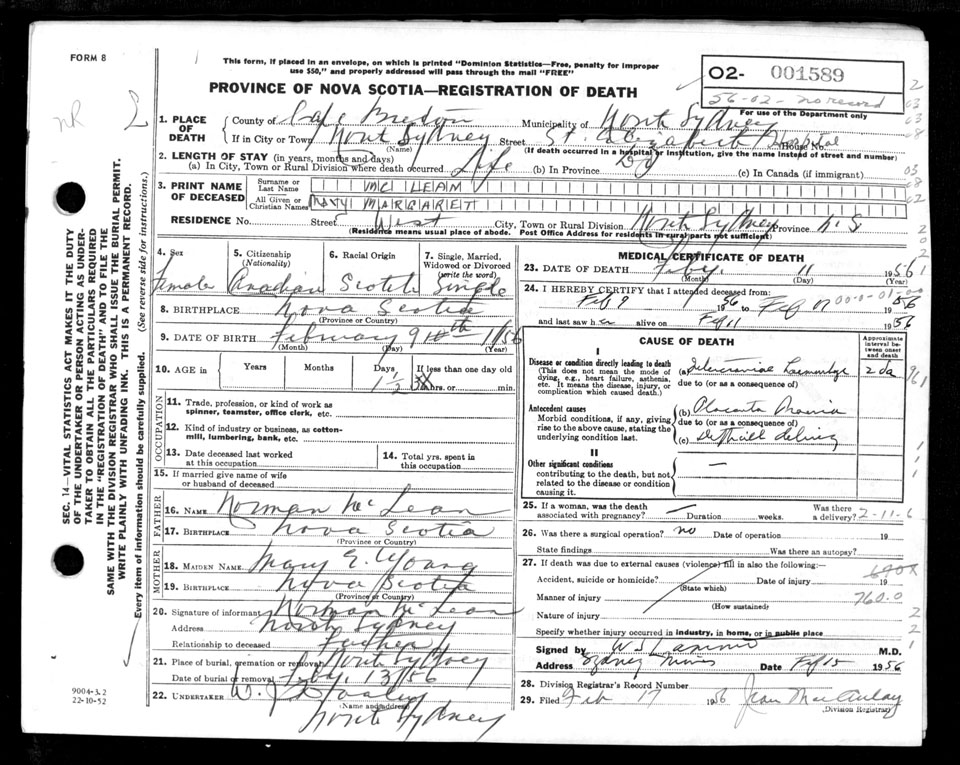 FORM 8
This form, if placed in an envelope, on which is printed "Dominion Statistics—Free, penalty for improper
use $50," and properly addressed will pass through the mail "FREE"
O2- 001589
56-02-no record
For use of the Department only
PROVINCE OF NOVA SCOTIA—REGISTRATION OF DEATH
1. PLACE OF DEATH
County of Cape Breton Municipality of North Sydney
If in City or Town North Sydney Street St. Elizabeth Hospital House No.
(Name) (If death occurred in a hospital or institution, give the name instead of street and number)
2. LENGTH OF STAY (in years, months and days)
(a) In City, Town or Rural Division where death occurred Life (b) In Province (c) In Canada (if immigrant)
3. PRINT NAME OF DECEASED
Surname or Last Name MCLEAN
All Given or Christian Names MARY MARGARET
RESIDENCE No. Street West City, Town or Rural Division North Sydney Province N.S
(Residence means usual place of abode. Post Office Address for residents in rural parts not sufficient)
SEC. 14—VITAL STATISTICS ACT MAKES IT THE DUTY
OF THE UNDERTAKER OR PERSON ACTING AS UNDER-
TAKER TO OBTAIN ALL THE PARTICULARS REQUIRED
IN THE "REGISTRATION OF DEATH" AND TO FILE THE
SAME WITH THE DIVISION REGISTRAR WHO SHALL ISSUE THE BURIAL PERMIT.
WRITE PLAINLY WITH UNFADING INK. THIS IS A PERMANENT RECORD.
Every item of information should be carefully supplied. (See reverse side for instructions.)
4. Sex
Female
5. Citizenship
(Nationality)
Canadian
6. Racial Origin
Scotch
7. Single, Married,
Widowed or Divorced
(write the word)
Single
8. BIRTHPLACE Nova Scotia
(Province or Country)
9. DATE OF BIRTH February 9 1956
(Month) (Day) (Year)
10. AGE in Years Months Days If less than one day old
1 1/2 hrs. or min.
OCCUPATION
11. Trade, profession, or kind of work as
spinner, teamster, office clerk, etc.
12. Kind of industry or business, as cotton-
mill, lumbering, bank, etc.
13. Date deceased last worked
at this occupation
14. Total yrs. spent in
this occupation
15. If married give name of wife
or husband of deceased
FATHER
16. NAME Norman McLean
17. BIRTHPLACE Nova Scotia
(Province or Country)
MOTHER
18. MAIDEN NAME Mary E. Young
19. BIRTHPLACE Nova Scotia
(Province or Country)
20. Signature of informant Norman McLean
Address North Sydney
Relationship to deceased Father
21. Place of burial, cremation or removal North Sydney
Date of burial or removal Feby. 13/56
22. UNDERTAKER W. J.
(Name and address)
North Sydney
9004-3.2
22-10-52
MEDICAL CERTIFICATE OF DEATH
23. DATE OF DEATH Feby. 11 1956
(Month) (Day) (Year)
24. I HEREBY CERTIFY that I attended deceased from:
Feb 9 56 to Feb 1956
and last saw her alive on Feb 11 1956
CAUSE OF DEATH
Approximate
interval be-
tween onset
and death
I
Disease or condition directly leading to death
(This does not mean the mode of
dying, e.g., heart failure, asthenia,
etc. It means the disease, injury, or
complication which caused death.)
(a) Intracranial Haemorrhage 2 da
due to (or as a consequence of)
Antecedent causes
Morbid conditions, if any, giving
rise to the above cause, stating the
underlying condition last.
(b) Placenta Praevia
due to (or as a consequence of)
(c) Difficult delivery
II
Other significant conditions
contributing to the death, but not
related to the disease or condition
causing it.
25. If a woman, was the death
associated with pregnancy? Duration weeks. Was there
a delivery? 2-11-6
26. Was there a surgical operation? no Date of operation 19
State findings Was there an autopsy?
27. If death was due to external causes (violence) fill in also the following:
Accident, suicide or homicide? Date of injury 19
(State which)
Manner of injury 760.0
(How sustained)
Nature of injury
Specify whether injury occurred in industry, in home, or in public place
Signed by M.D.
Address Sydney Mines Date Feb 15 1956
28. Division Registrar's Record Number
29. Filed Feb 17 1956 Jean MacAulay
(Division Registrar)